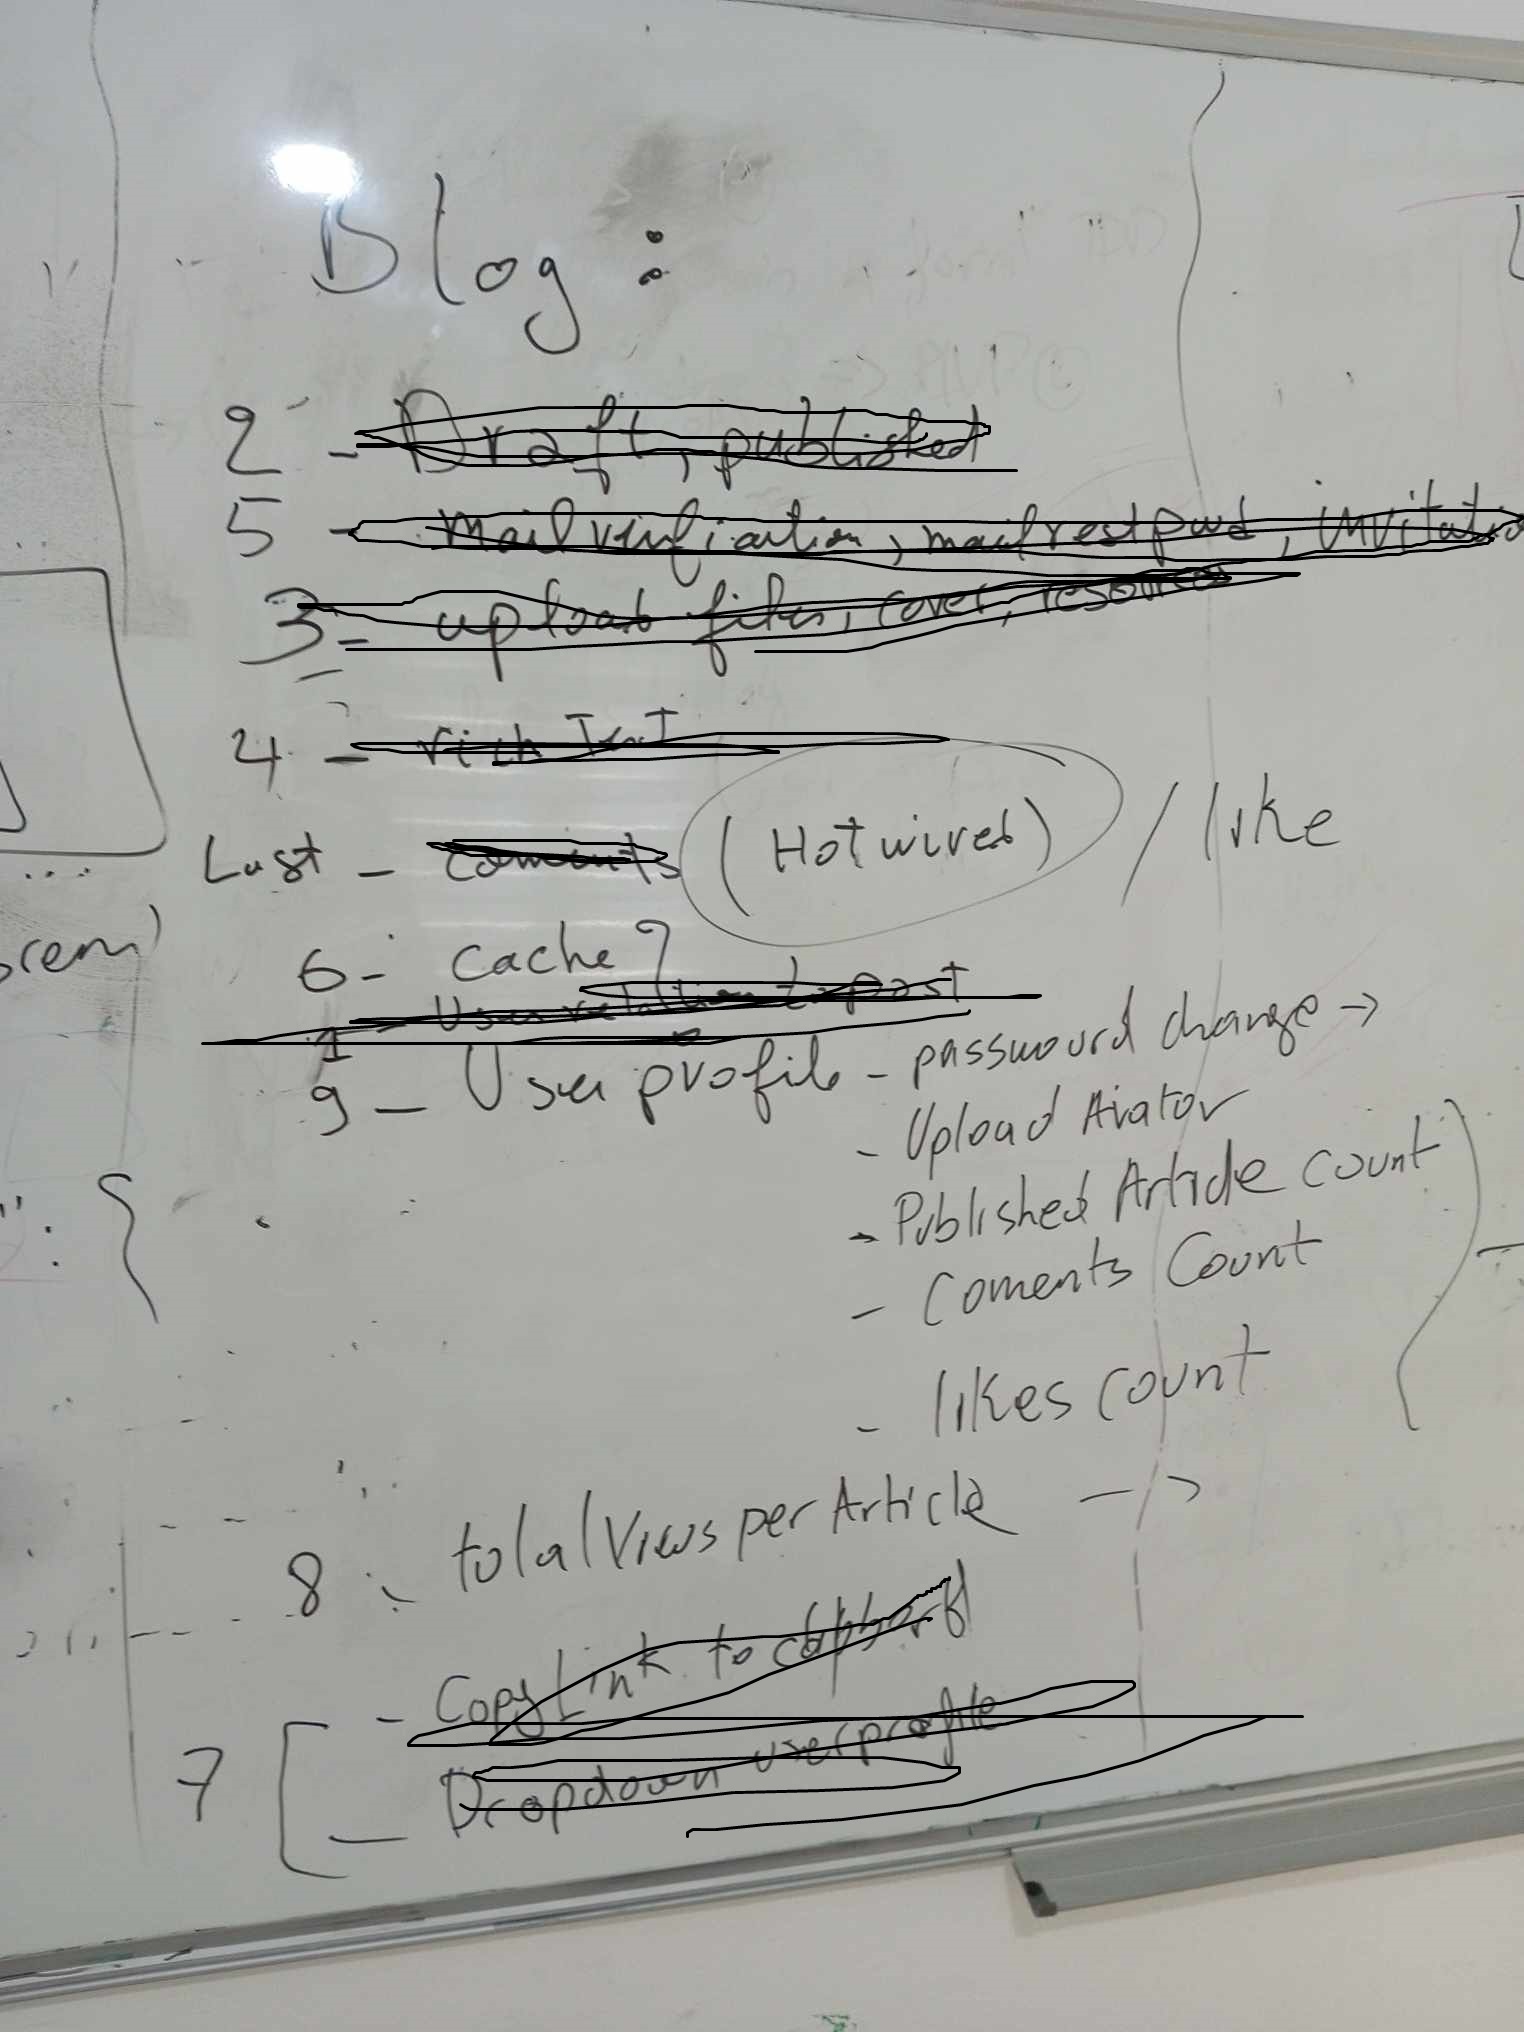 Blog :
2 - Draft, published
5 - mail virification, mail rest pwd, invitatio
3 - upload files, cover, resources
4 - rich Text
Last - coments (Hotwired) / like
6 - cache ?
1 - User relation to post
9 - User profile - passwourd change →
- Upload Avator
- Published Article count
- Coments Count
- likes count
8 - total Views per Article →
7 [ - Copy Link to
- Dropdown user profile
orem)
": {